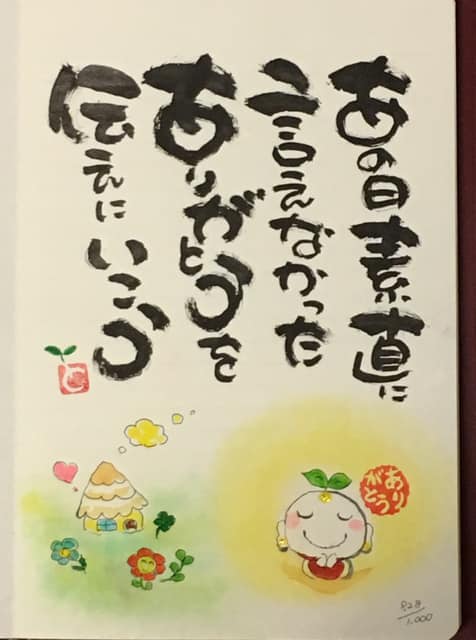 あの日素直に
言えなかった
ありがとうを
伝えにいこう
あり
がとう
828
1,000